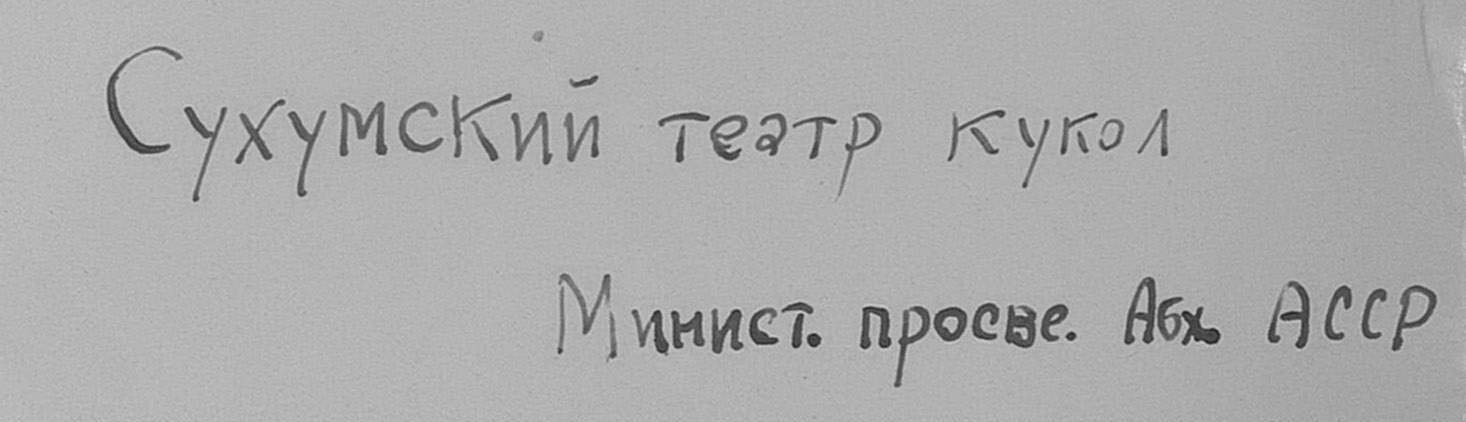 Сухумский театр кукол
Минист. просве. Абх. АССР